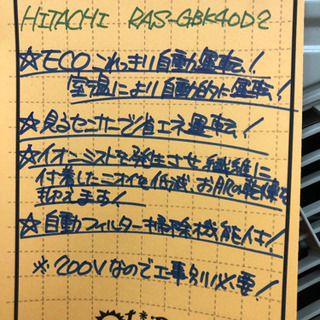 HITACHI RAS-GBK40D2
☆ECOこれっきり自動運転！
室温により自動的に運転！
☆見るセンサーで省エネ運転！
☆イオンミストを発生させ繊維に
付着したニオイを低減、お肌の乾燥を
抑えます！
☆自動フィルター掃除機能付！
※200Vなので工事別必要！